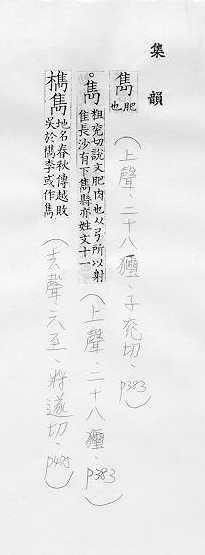 集韻
雋肥也(上聲.二十八獮.子兖切.p383)
雋粗兖切說文肥肉也从弓所以射隹長沙有下雋縣亦姓文十一(上聲.二十八獮.p383)
檇雋地名春秋傳越敗吳於檇李或作雋(去聲.六至.將遂切.p485)